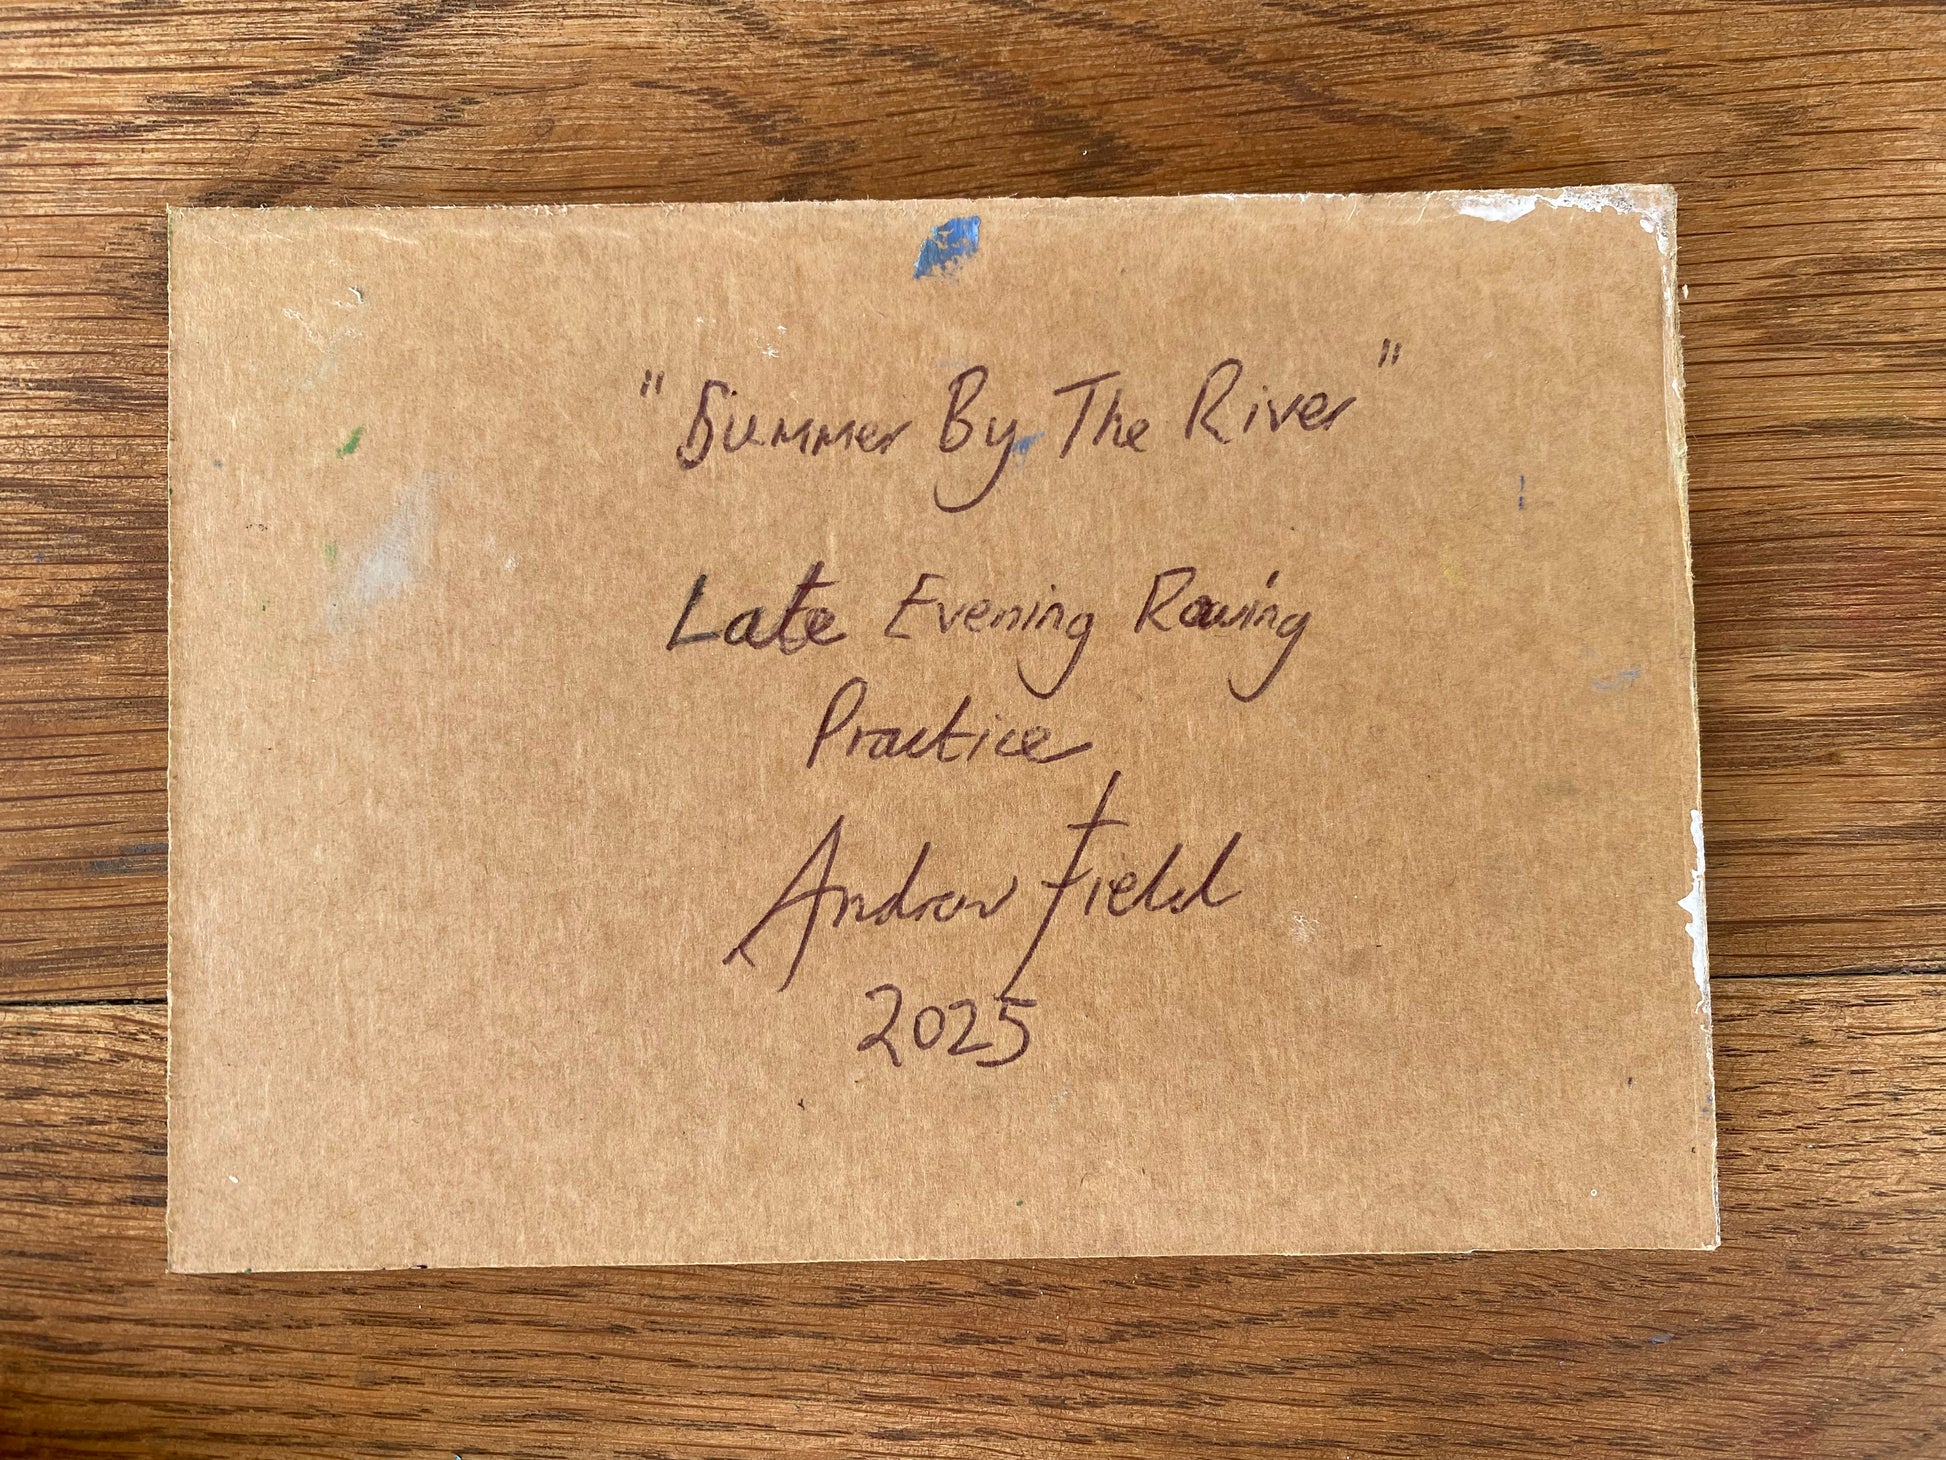 "Summer By The River"
Late Evening Rowing
Practice
Andrew Field
2025